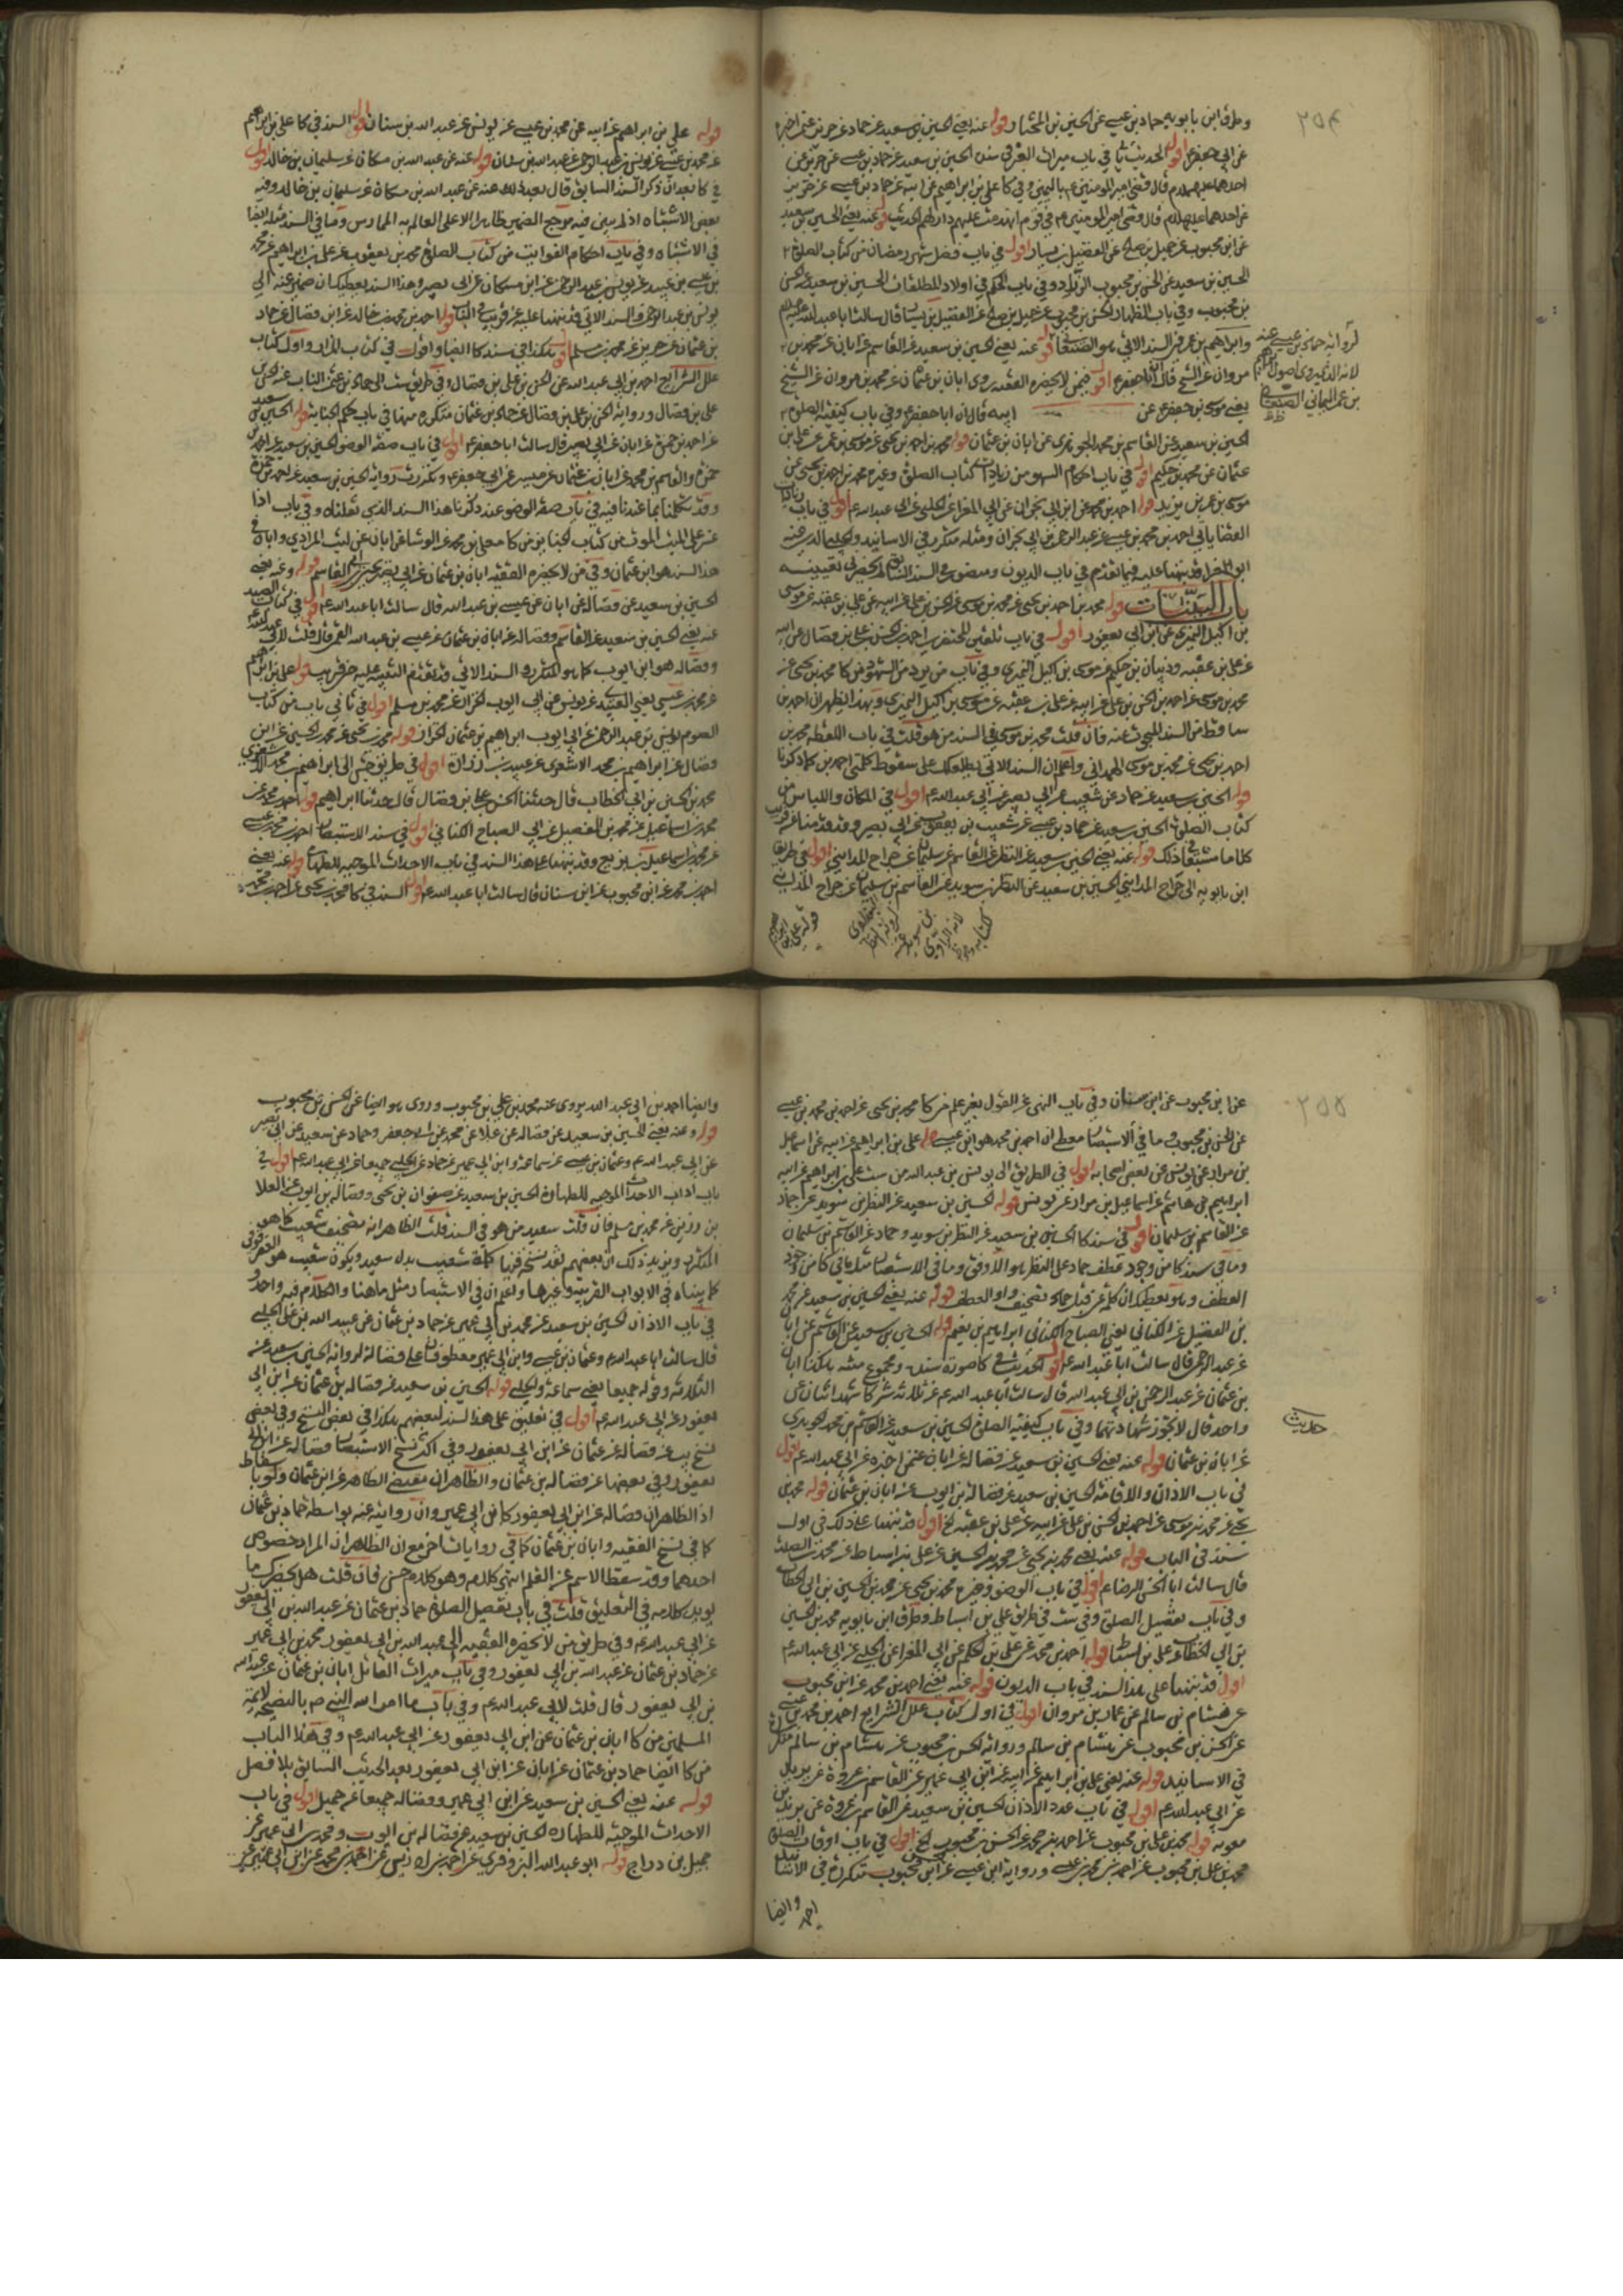 ٢٥٤
وطرق ابن بابويه حماد بن عيسى عن الحسين بن المختار قوله عنه يعني الحسين بن سعيد عن حماد عن حريز عمن اخبره
عن ابي جعفر ع اقول الحديث في باب ميراث الغرقى سنده الحسين بن سعيد عن حماد بن عيسى عن حريز عن
احدهما عليهما السلام قال قضى امير المؤمنين ع باليمن وفي كا علي بن ابراهيم عن ابيه عن حماد بن عيسى عن حريز
عن احدهما عليهما السلام قال قضى امير المؤمنين ع في قوم انهدمت عليهم دارهم الحديث قوله عنه يعني الحسين بن سعيد
عن ابن محبوب عن جميل بن صالح عن الفضيل بن يسار اقول في باب فضل شهر رمضان من كتاب الصلوة
الحسين بن سعيد عن الحسن بن محبوب الزراد وفي باب الحكم في اولاد المطلقات الحسين بن سعيد عن الحسن
بن محبوب وفي باب الظهار الحسن بن محبوب عن جميل بن صالح عن الفضيل بن يسار قال سالت ابا عبد الله عليه السلام
وابراهيم بن عمر في السند الاتي هو الصنعاني قوله عنه يعني الحسين بن سعيد عن القاسم عن ابان عن محمد بن
مروان عن الشيخ اقول في من لا يحضره الفقيه روى ابان بن عثمان عن محمد بن مروان عن الشيخ
يعني موسى بن جعفر ع عن ابيه قال ان ابا جعفر ع وفي باب كيفية الصلوة
الحسين بن سعيد عن القاسم بن محمد الجوهري عن ابان بن عثمان قوله محمد بن احمد بن يحيى عن موسى بن عمر عن علي بن
عثمان عن محمد بن حكيم اقول في باب احكام السهو من زيادات كتاب الصلوة وغيره محمد بن احمد بن يحيى عن
موسى بن عمر بن يزيد قوله احمد بن محمد عن ابن ابي نجران عن ابي المغرا عن الحلبي عن ابي عبد الله ع اقول في باب
باب البينات قوله محمد بن احمد بن يحيى عن محمد بن موسى عن الحسن بن علي عن ابيه عن علي بن عقبة عن موسى
بن اكيل النميري عن ابن ابي يعفور اقول في باب تلقين المحتضرين احمد بن الحسن بن علي بن فضال عن ابيه
عن علي بن عقبة وذبيان بن حكيم عن موسى بن اكيل النميري وفي باب من يرد من الشهود من كا محمد بن يحيى عن
محمد بن موسى عن احمد بن الحسن بن علي عن ابيه عن علي بن عقبة عن موسى بن اكيل النميري وبهذا يظهر ان احمد بن
ساقط من السند المبحوث عنه فان قلت محمد بن موسى في السند من هو قلت في باب اللقطة محمد بن
احمد بن يحيى عن محمد بن موسى الهمداني واعلم ان السند الاتي يطلعك على سقوط كلمتي احمد بن كما ذكرنا
قوله الحسين بن سعيد عن حماد عن شعيب عن ابي بصير عن ابي عبد الله ع اقول في المكان واللباس من
كتاب الصلوة الحسين بن سعيد عن حماد بن عيسى عن شعيب بن يعقوب عن ابي بصير وقد قدمنا عن قريب
كلاما مشبعا في ذلك قوله عنه يعني الحسين بن سعيد عن النظر عن القاسم بن سليمان عن جراح المدايني اقول في طريق
ابن بابويه الى جراح المدايني الحسين بن سعيد عن النظر بن سويد عن القاسم بن سليمان عن جراح المدايني
لروايه حماد بن عيسى عنه
قوله علي بن ابراهيم عن ابيه عن محمد بن عيسى عن يونس عن عبد الله بن سنان اقول السند في كا علي بن ابراهيم
عن محمد بن عيسى عن يونس بن عبد الرحمن عن عبد الله بن سنان قوله عنه عن عبد الله بن مسكان عن سليمان بن خالد اقول
في كا بعد ان ذكر السند السابق قال بعد ذلك عنه عن عبد الله بن مسكان عن سليمان بن خالد وفيه
بعض الاشتباه اذ لم يبين فيه مرجع الضمير ظاهرا الا على العالم به الممارس وما في السند مثله ايضا
في الاشتباه وفي باب احكام الفوايت من كتاب الصلوة محمد بن يعقوب عن علي بن ابراهيم عن محمد
بن عيسى بن عبيد عن يونس بن عبد الرحمن عن ابن مسكان عن ابي بصير وهذا السند يعطيك ان ضمير عنه الى
يونس بن عبد الرحمن والسند الاتي قد نبهنا عليه عن قريب قوله احمد بن محمد بن خالد عن ابن فضال عن حماد
بن عثمان عن حريز عن محمد بن مسلم اقول هكذا في سند كا ايضا واقول في كتاب
علل الشرايع احمد بن ابي عبد الله عن الحسن بن علي بن فضال
علي بن فضال ورواية الحسن بن علي بن فضال عن حماد بن عثمان متكررة منها في باب حكم الجنابة قوله الحسين بن سعيد
وقد تكلمنا بما عندنا فيه في باب صفة الوضوء عند ذكرنا هذا السند الذي نقلناه وفي باب اذا
الحسين بن سعيد عن فضالة عن ابان عن عيسى بن عبد الله قال سالت ابا عبد الله ع اقول في كتاب الصيد
عنه يعني الحسين بن سعيد عن القاسم وفضالة عن ابان بن عثمان عن عيسى بن عبد الله القمي قال قلت لابي عبد الله
وفضالة هو ابن ايوب كما هو المتكرر والسند الاتي قد تقدم التنبيه عليه عن قريب قوله علي بن ابراهيم
عن محمد بن عيسى يعني العبيدي عن يونس عن ابي ايوب الخزاز عن محمد بن مسلم اقول في ثاني باب من كتاب
الصوم يونس بن عبد الرحمن عن ابي ايوب ابراهيم بن عثمان الخزاز قوله محمد بن يحيى عن محمد بن الحسين عن ابن
فضال عن ابراهيم بن محمد الاشعري عن عبيد بن زرارة اقول في طريق جش الى ابراهيم بن محمد الاشعري
محمد بن الحسين بن ابي الخطاب قال حدثنا الحسن بن علي بن فضال قال حدثنا ابراهيم قوله احمد بن محمد عن
محمد بن اسماعيل عن محمد بن الفضيل عن ابي الصباح الكناني اقول في سند الاستبصار احمد بن محمد بن عيسى
عن محمد بن اسماعيل بن بزيع وقد نبهنا على هذا السند في باب الاحداث الموجبة للطهارة قوله عنه يعني
احمد بن محمد عن ابن محبوب عن ابن سنان قال سالت ابا عبد الله ع اقول السند في كا محمد بن يحيى عن احمد بن محمد
٢٥٥
عن ابن محبوب عن ابن سنان وفي باب النهي عن القول بغير علم من كا محمد بن يحيى عن احمد بن محمد بن عيسى
عن الحسن بن محبوب وما في الاستبصار معط ان احمد بن محمد هو ابن عيسى قوله علي بن ابراهيم عن ابيه عن اسماعيل
بن مرار عن يونس عن بعض اصحابه اقول في الطريق الى يونس بن عبد الرحمن من ست علي بن ابراهيم عن ابيه
ابراهيم بن هاشم عن اسماعيل بن مرار عن يونس قوله الحسين بن سعيد عن النظر بن سويد عن حماد
عن القاسم بن سليمان اقول في سند كا الحسين بن سعيد عن النظر بن سويد وحماد عن القاسم بن سليمان
وما في سند كا من وجود عطف حماد على النظر هو الاوفق وما في الاستبصار مثل ما في كا من وجود
العطف وهو يعطيك ان كلمة عن قبل حماد تصحيف واو العطف قوله عنه يعني الحسين بن سعيد عن محمد
بن الفضيل عن الكناني يعني الصباح الكناني ابراهيم بن نعيم قوله الحسين بن سعيد عن القاسم عن ابان
عن عبد الرحمن قال سالت ابا عبد الله ع اقول الحديث في كا صورة سنده ومجموع متنه هكذا ابان
بن عثمان عن عبد الرحمن بن ابي عبد الله قال سالت ابا عبد الله ع عن ثلاثة شركا شهد اثنان على
واحد قال لا يجوز شهادتهما وفي باب كيفية الصلوة الحسين بن سعيد عن القاسم بن محمد الجوهري
عن ابان بن عثمان قوله عنه يعني الحسين بن سعيد عن فضالة عن ابان عمن اخبره عن ابي عبد الله ع اقول
في باب الاذان والاقامة الحسين بن سعيد عن فضالة بن ايوب عن ابان بن عثمان قوله محمد بن
يحيى عن محمد بن موسى عن احمد بن الحسن بن علي عن ابيه عن علي بن عقبة الخ اقول قد نبهنا على ذلك في اول
سند في الباب قوله عنه يعني محمد بن يحيى عن محمد بن الحسين عن علي بن اسباط عن محمد بن الصلت
قال سالت ابا الحسن الرضا ع اقول في باب الوضوء وغيره محمد بن يحيى عن محمد بن الحسين بن ابي الخطاب
وفي باب تفصيل الصلوة وفي ست في طريق علي بن اسباط وطرق ابن بابويه محمد بن الحسين
بن ابي الخطاب عن علي بن اسباط قوله احمد بن محمد عن علي بن الحكم عن ابي المغرا عن الحلبي عن ابي عبد الله ع
اقول قد نبهنا على هذا السند في باب الديون قوله عنه يعني احمد بن محمد عن ابن محبوب
عن هشام بن سالم عن عمار بن مروان اقول في اول كتاب علل الشرايع احمد بن محمد بن عيسى
عن الحسن بن محبوب عن هشام بن سالم ورواية الحسن بن محبوب عن هشام بن سالم متكررة
في الاسانيد قوله عنه يعني علي بن ابراهيم عن ابيه عن ابن ابي عمير عن القاسم بن عروة عن بريد
عن ابي عبد الله ع اقول في باب عدد الاذان الحسين بن سعيد عن القاسم بن عروة عن بريد بن
معوية قوله محمد بن علي بن محبوب عن احمد بن محمد عن الحسن بن محبوب الخ اقول في باب اوقات الصلوة
محمد بن علي بن محبوب عن احمد بن محمد بن عيسى ورواية ابن عيسى عن ابن محبوب متكررة في الاسانيد
حديث
وايضا احمد بن ابي عبد الله يروي عنه محمد بن علي بن محبوب وروى هو ايضا عن الحسن بن محبوب
قوله وعنه يعني الحسين بن سعيد عن فضالة عن علا عن محمد عن ابي جعفر وحماد عن سعيد عن ابي بصير
عن ابي عبد الله ع وعثمان بن عيسى عن سماعة وابن ابي عمير عن حماد عن الحلبي جميعا عن ابي عبد الله ع اقول في
باب اداب الاحداث الموجبة للطهارة الحسين بن سعيد عن صفوان بن يحيى وفضالة بن ايوب عن العلا
بن رزين عن محمد بن مسلم فان قلت سعيد من هو في السند قلت الظاهر انه تصحيف شعيب كما هو
المتكرر ويؤيد ذلك ان بعضهم نقد نسخ فيها كلمة شعيب بدل سعيد ويكون شعيب هو العقرقوفي
كما بيناه في الابواب القريبة وغيرها واعلم ان في الاستبصار مثل ما هنا والكلام فيه واحد
في باب الاذان الحسين بن سعيد عن محمد بن ابي عمير عن حماد بن عثمان عن عبيد الله بن علي الحلبي
قال سالت ابا عبد الله ع وعثمان بن عيسى وابن ابي عمير معطوفان على فضالة لرواية الحسين بن سعيد عن
الثلاثة وقوله جميعا يعني سماعة والحلبي قوله الحسين بن سعيد عن فضالة بن عثمان عن ابن ابي
يعفور عن ابي عبد الله ع اقول في تعليق على هذا السند لبعضهم هكذا في بعض النسخ وفي بعض
نسخ يب عن فضالة عن عثمان عن ابن ابي يعفور وفي اكثر نسخ الاستبصار فضالة عن ابن ابي
يعفور وفي بعضها عن فضالة بن عثمان والظاهر ان
اذ الظاهر ان فضالة عن ابن ابي يعفور كابن ابي عمير وان روايته عنه بواسطة حماد بن عثمان
كما في نسخ الفقيه وابان بن عثمان كما في روايات اخر مع ان الظاهر ان المراد خصوص
احدهما وقد سقط الاسم عن القلم انتهى كلامه وهو كلام حسن فان قلت هل يحضرك ما
يؤيد كلامه في التعليق قلت في باب تفصيل الصلوة حماد بن عثمان عن عبد الله بن ابي يعفور
عن ابي عبد الله ع وفي طريق من لا يحضره الفقيه الى عبد الله بن ابي يعفور محمد بن ابي عمير
عن حماد بن عثمان عن عبد الله بن ابي يعفور وفي باب ميراث القاتل ابان بن عثمان عن عبد الله
بن ابي يعفور قال قلت لابي عبد الله ع وفي باب ما امر الله النبي ص بالنصيحة لائمة
المسلمين من كا ابان بن عثمان عن ابن ابي يعفور عن ابي عبد الله ع وفي هذا الباب
من كا ايضا حماد بن عثمان عن ابان عن ابن ابي يعفور بعد الحديث السابق بلا فصل
قوله عنه يعني الحسين بن سعيد عن ابن ابي عمير وفضالة جميعا عن جميل اقول في باب
الاحداث الموجبة للطهارة الحسين بن سعيد عن فضالة بن ايوب ومحمد بن ابي عمير عن
جميل بن دراج قوله ابو عبد الله البزوفري عن احمد بن ادريس عن احمد بن محمد عن ابن ابي عمير